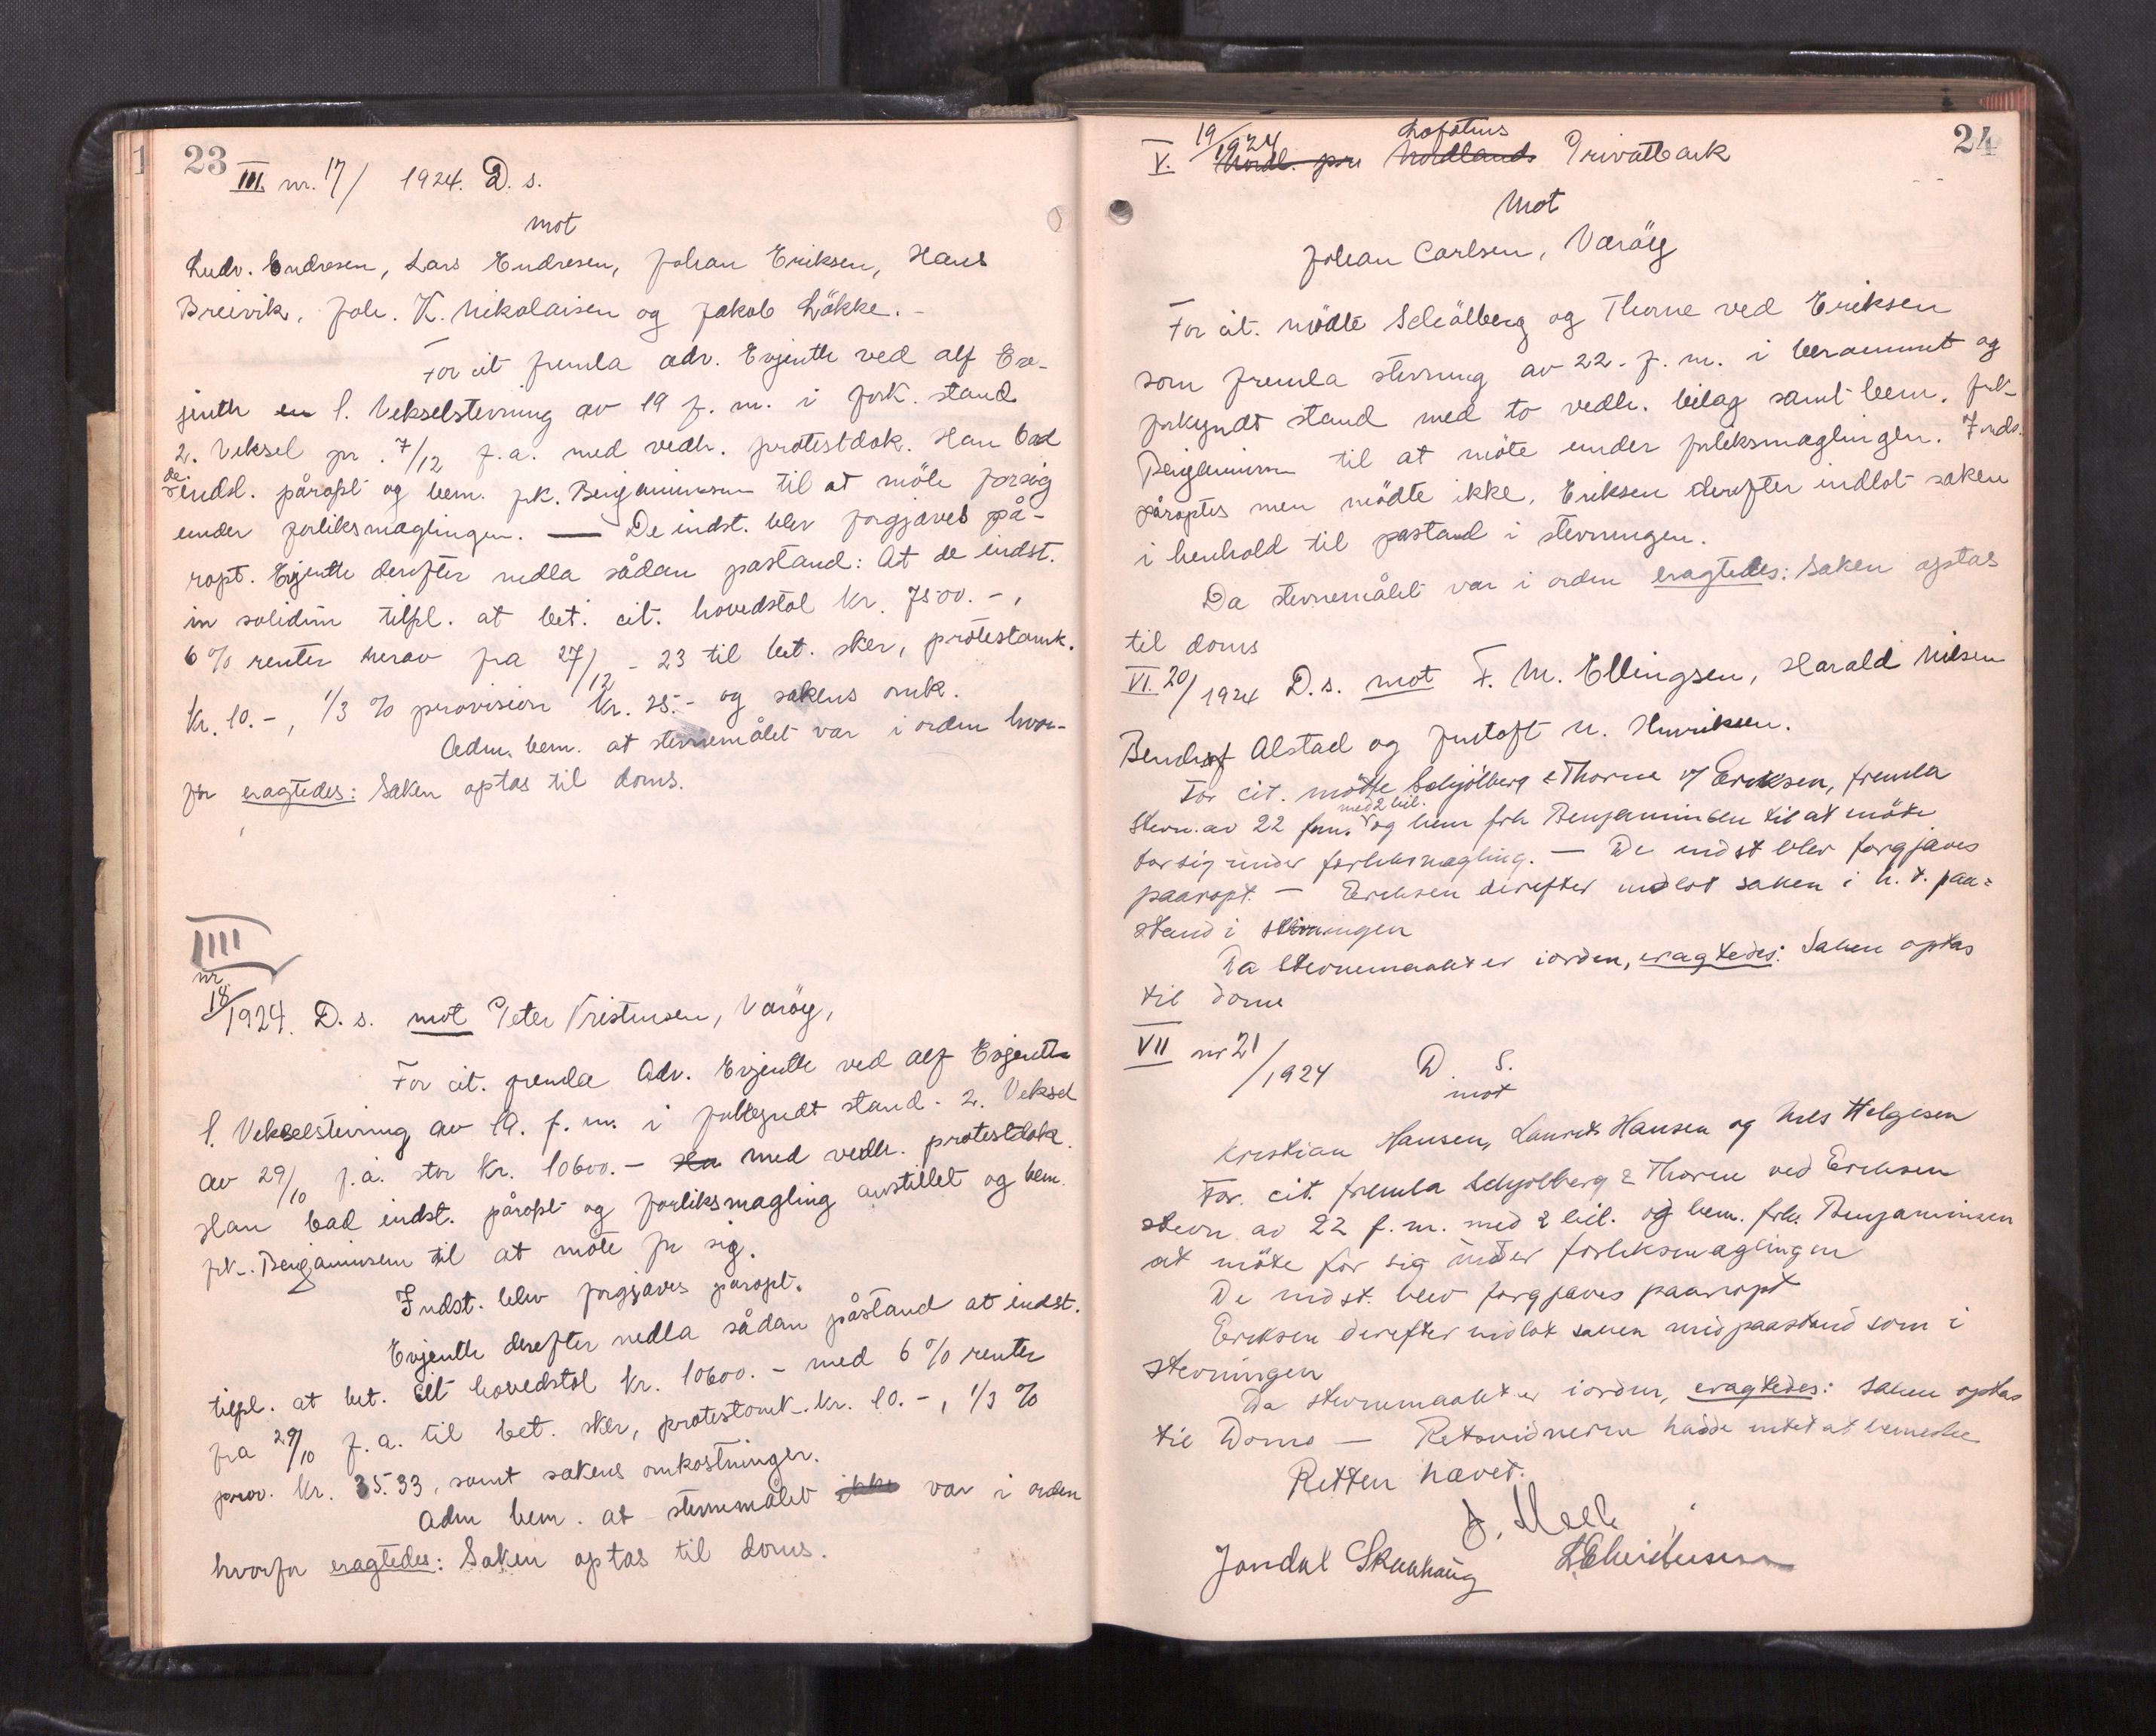 23
III. nr. 17/ 1924. D. s.
mot
Ludv. Endresen, Lars Endresen, Johan Eriksen, Hans
Breivik, Joh. K. Nikolaisen og Jakob Lökke. -
For cit fremla adv. Evjenth ved Alf Ev-
jenth en 1. Vekselstevning av 19 f. m. i fork. stand
2. Veksel pr. 7/12 f.a. med vedh. protestdok. Han bad
de indst. påropt og bem. frk. Benjaminsen til at möte forsig
under forliksmæglingen. — De indst. blev forgjæves på-
ropt. Evjenth derefter nedla sådan pastand: At de indst.
in solidum tilpl. at bet. cit. hovedstol kr. 7500.-,
6 % renter herav fra 27/12 - 23 til bet. sker, protestomk.
kr. 10.-, 1/3 % provision kr. 25.- og sakens omk.
Adm. bem. at stevnemålet var i orden hvor-
for eragtedes: Saken optas til doms.
IIII
nr.
18/1924. D. s. mot Peter Kristensen, Væröy,
For cit. fremla Adv. Evjenth ved Alf Evjenth
1. Vekselstevning av 19. f. m. i forkyndt stand. 2. Veksel
av 29/10 f.a. stor kr. 10600.- Ha med vedh. protestdok.
Han bad indst. påropt og forliksmægling anstillet og bem.
frk. Benjaminsen til at möte for sig.
Indst. blev forgjæves påropt.
Evjenth derefter nedla sådan påstand at indst.
tilpl. at bet. cit hovedstol kr. 10600.- med 6 % renter
fra 29/10 f.a. til bet. sker, protestomk. kr. 10.-, 1/3 %
prov. kr. 35.33, samt sakens omkostninger.
Adm bem. at stevnemålet ikke var i orden
hvorfor eragtedes: Saken optas til doms.
24
V. 19/1924 Nordl. pri Nordlands Lofotens Privatbank
Mot
Johan Carlsen, Væröy
For cit. mödte Schölberg og Thorne ved Eriksen
som fremla stevning av 22. f. m. i berammet og
forkyndt stand med to vedh. bilag samt bem. frk.
Benjaminsen til at möte under forliksmæglingen. Inds.
påroptes men mödte ikke. Eriksen derefter indlot saken
i henhold til pastand i stevningen.
Da stevnemålet var i orden eragtedes: Saken optas
til doms
VI. 20/1924 D. s. mot F. M. Ellingsen, Harald Nilsen
Alstad og N. Henriksen.
For cit. mötte Schjölberg & Thorne v/ Eriksen, fremla
stevn. av 22 f.m. med 2 bil. og bem frk Benjaminsen til at möte
for sig under forliksmægling. — De indst blev forgjæves
paaropt. — Eriksen derefter indlot saken i h. t. paa=
stand i stevningen
Da stevnemaalet er iorden, eragtedes: Saken optas
til doms
VII nr 21/1924 D. S.
mot
Kristian Hansen, Laurits Hansen og Nils Helgesen
For. cit. fremla Schjölberg & Thorne ved Eriksen
stevn av 22 f. m. med 2 bil. og bem. frk. Benjaminsen
at möte for sig under forliksmæglingen
De indst. blev forgjæves paaropt
Eriksen derefter indlot saken med paastand som i
stevningen
Da stevnemaalet er iorden, eragtedes: Saken optas
til Doms — Retsvidnerne hadde intet at bemerke
Retten hævet.
Jondal Skaahaug